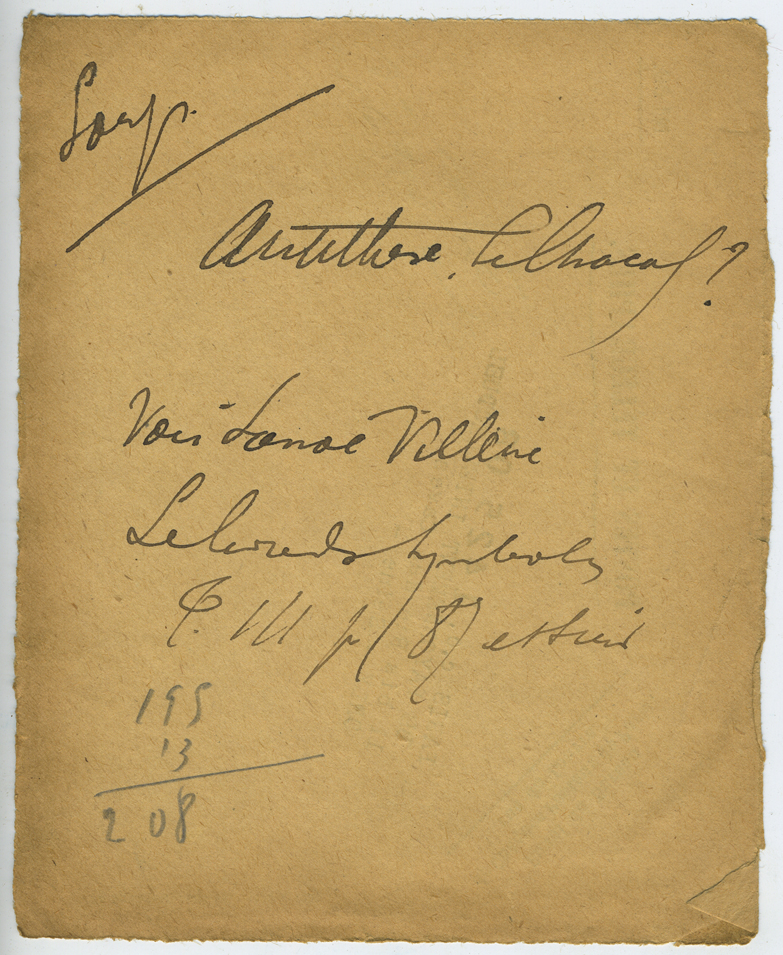 Loup.
Antithese, le Chacal ?
Voir Lanoe Villène
Le livre des symboles
T. III p 187 et suiv
195
13
208